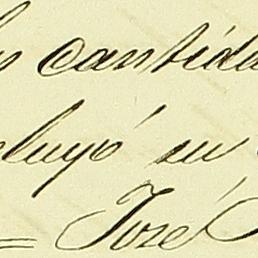 cantida
cluyó en
= José